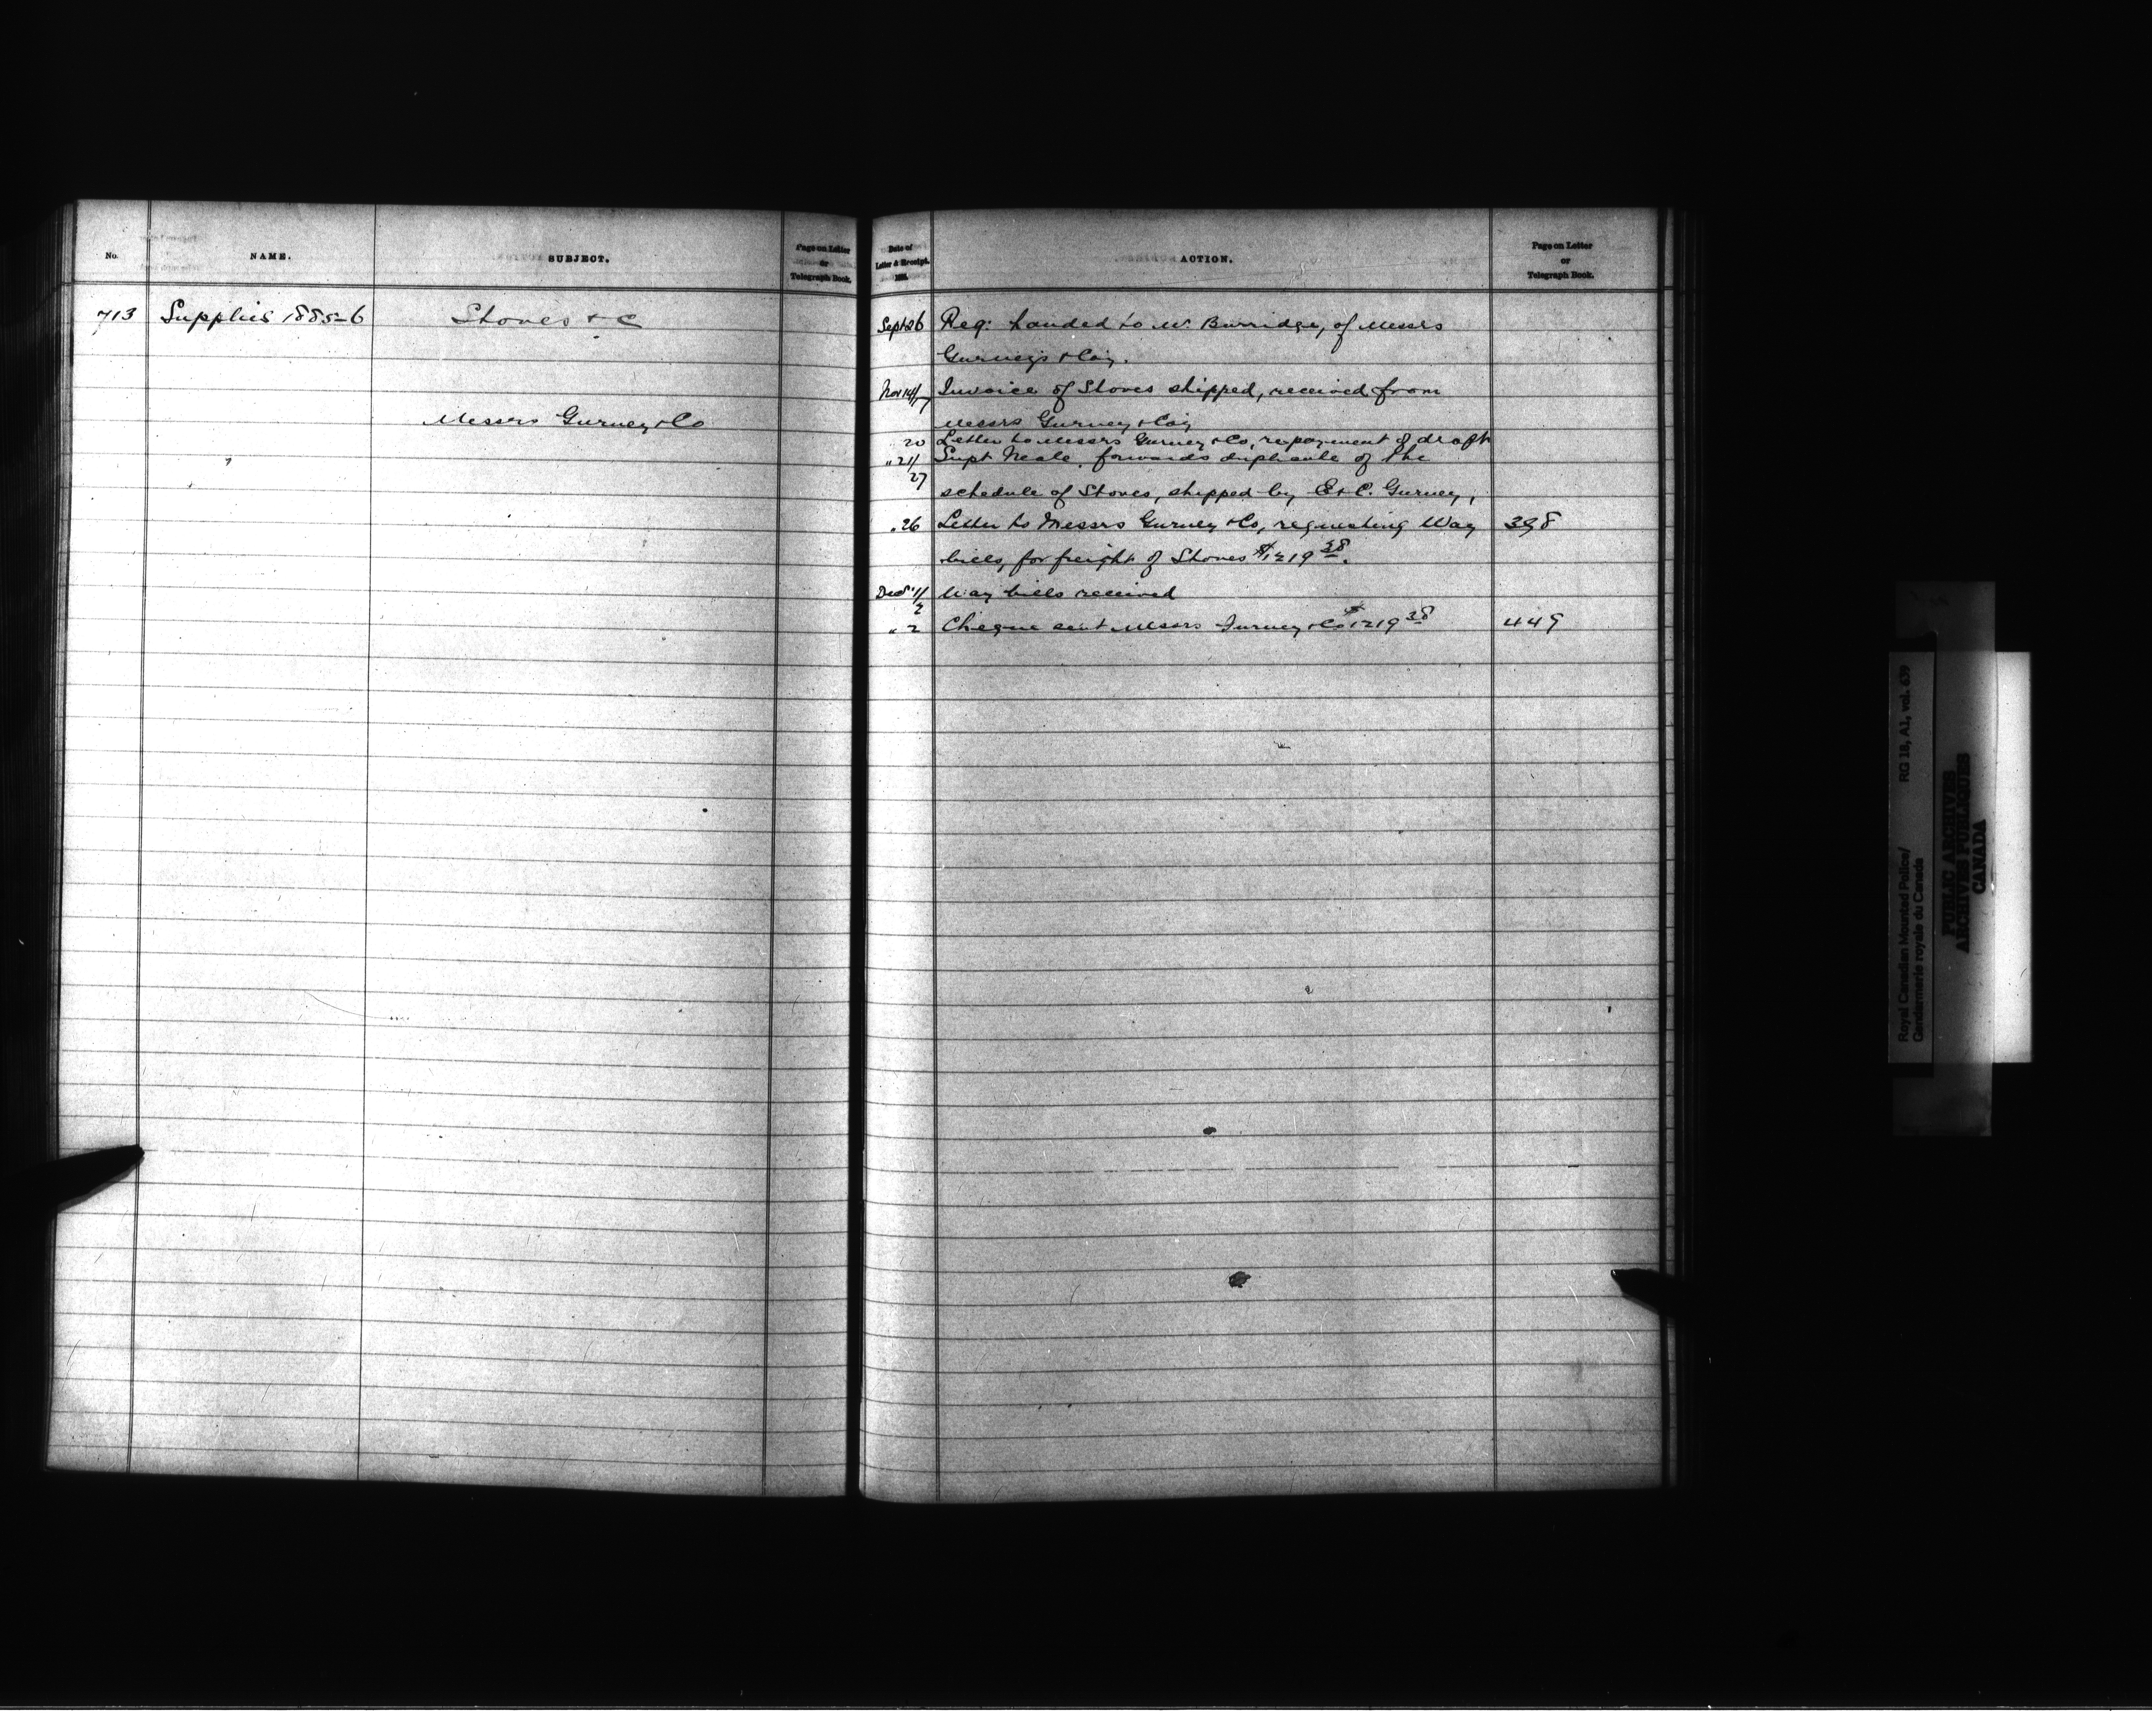 No.
NAME.
SUBJECT.
Page on Letter
or
Telegraph Book.
713 Supplies 1885-6 Stoves & c
Messrs Gurney & Co
Date of
Letter & Receipt.
ACTION.
Page on Letter
or
Telegraph Book.
Sept 26 Req: handed to Mr Burridge, of Messrs
Gurneys & Coy.
Nov 14/17 Invoice of Stoves shipped, received from
Messrs Gurney & Coy
20 Letter to Messrs Gurney & Co, re payment of draft
" 21/ Supt Neale, forwards duplicate of the
27
schedule of Stoves, shipped by E & C. Gurney,
" 26 Letter to Messrs Gurney & Co, requesting Way 398
bills, for freight of Stoves $1219 38.
Dec 1/2 Way bills received
" 2 Cheque sent Messrs Gurney & Co $1219 38 449
Royal Canadian Mounted Police/ RG 18, A1, vol. 639
Gendarmerie royale du Canada
PUBLIC ARCHIVES
ARCHIVES PUBLIQUES
CANADA